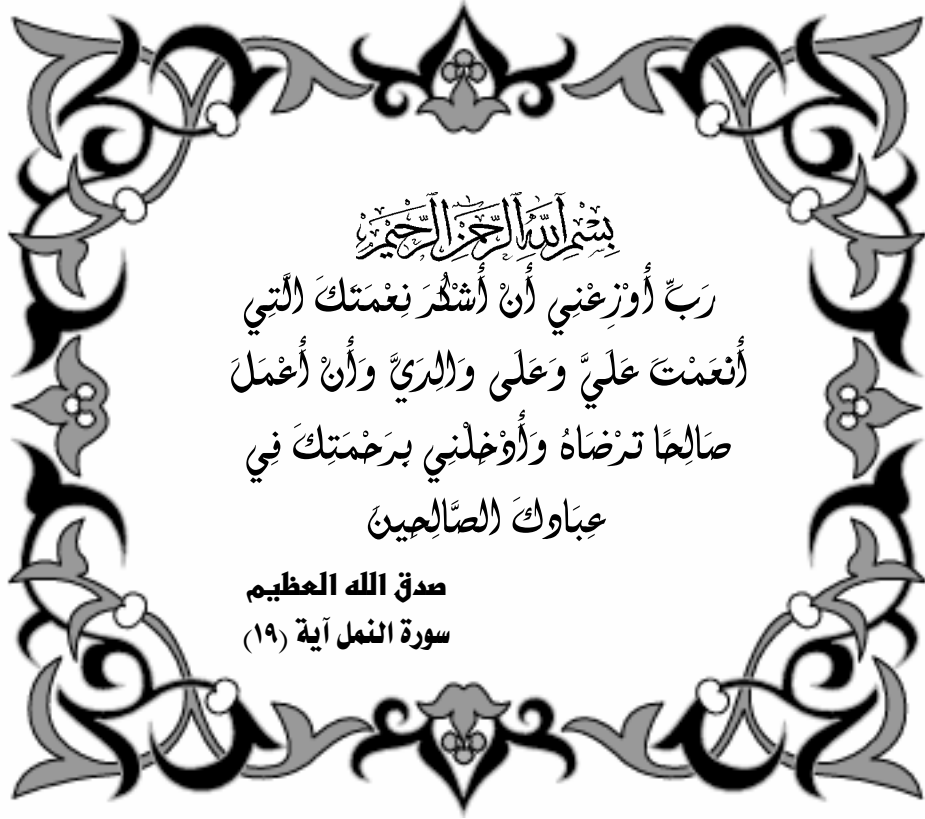 بِسْمِ اللَّهِ الرَّحْمَنِ الرَّحِيمِ
رَبِّ أَوْزِعْنِي أَنْ أَشْكُرَ نِعْمَتَكَ الَّتِي
أَنْعَمْتَ عَلَيَّ وَعَلَى وَالِدَيَّ وَأَنْ أَعْمَلَ
صَالِحًا تَرْضَاهُ وَأَدْخِلْنِي بِرَحْمَتِكَ فِي
عِبَادِكَ الصَّالِحِينَ
صدق الله العظيم
سورة النمل آية (١٩)